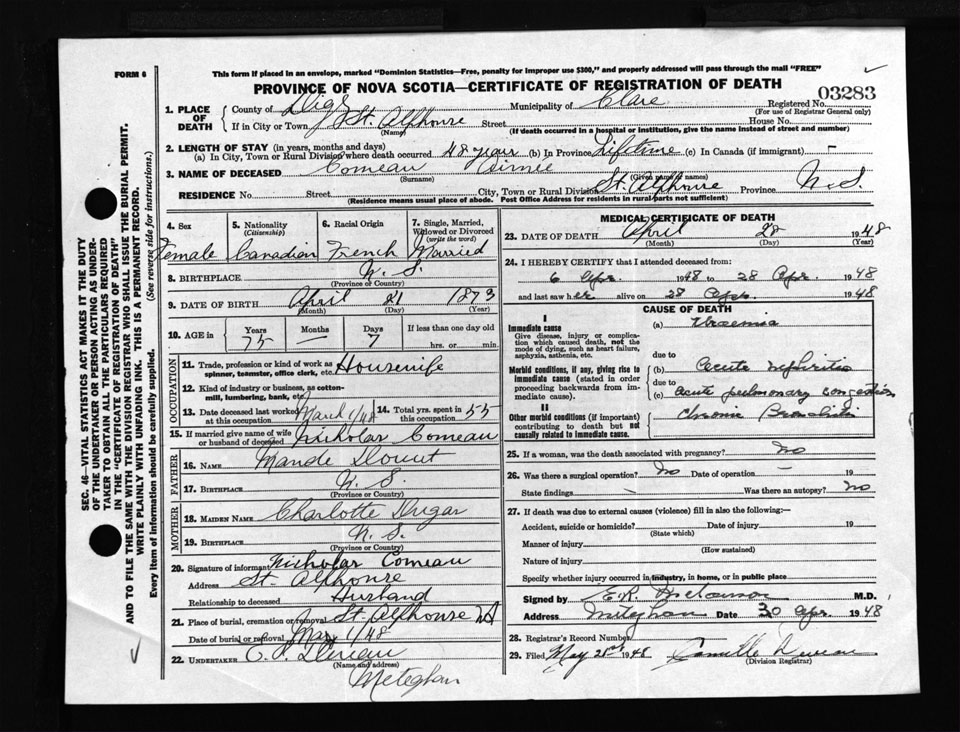 FORM 6
This form if placed in an envelope, marked "Dominion Statistics—Free, penalty for improper use $300," and properly addressed will pass through the mail "FREE"
PROVINCE OF NOVA SCOTIA—CERTIFICATE OF REGISTRATION OF DEATH
03283
1. PLACE OF DEATH County of Digby Municipality of Clare Registered No.
(For use of Registrar General only)
If in City or Town St. Alphonse Street House No.
(Name) (If death occurred in a hospital or institution, give the name instead of street and number)
2. LENGTH OF STAY (in years, months and days)
(a) In City, Town or Rural Division where death occurred 48 years (b) In Province Lifetime (c) In Canada (if immigrant) -
3. NAME OF DECEASED Comeau
(Surname) (Given name or names)
RESIDENCE No. Street City, Town or Rural Division St. Alphonse Province N.S.
(Residence means usual place of abode. Post Office Address for residents in rural parts not sufficient)
4. Sex Female
5. Nationality (Citizenship) Canadian
6. Racial Origin French
7. Single, Married, Widowed or Divorced (write the word) Married
8. BIRTHPLACE N.S.
(Province or Country)
9. DATE OF BIRTH April 21 1873
(Month) (Day) (Year)
10. AGE in Years 75 Months — Days 7 If less than one day old hrs. or min.
OCCUPATION
11. Trade, profession or kind of work as spinner, teamster, office clerk, etc. Housewife
12. Kind of industry or business, as cotton-mill, lumbering, bank, etc.
13. Date deceased last worked at this occupation March 1/48 14. Total yrs. spent in this occupation 55
15. If married give name of wife or husband of deceased Nicholas Comeau
FATHER
16. NAME Mande
17. BIRTHPLACE N.S.
(Province or Country)
MOTHER
18. MAIDEN NAME Charlotte Dugas
19. BIRTHPLACE N.S.
(Province or Country)
20. Signature of informant Nicholas Comeau
Address St. Alphonse
Relationship to deceased Husband
21. Place of burial, cremation or removal St. Alphonse NS
Date of burial or removal May 1/48
22. UNDERTAKER
(Name and address)
Meteghan
MEDICAL CERTIFICATE OF DEATH
23. DATE OF DEATH April 28 1948
(Month) (Day) (Year)
24. I HEREBY CERTIFY that I attended deceased from:
6 Apr. 1948 to 28 Apr. 1948
and last saw her alive on 28 Apr. 1948
CAUSE OF DEATH
I
Immediate cause
Give disease, injury or complication which caused death, not the mode of dying, such as heart failure, asphyxia, asthenia, etc.
(a) Uraemia
due to
Morbid conditions, if any, giving rise to immediate cause (stated in order proceeding backwards from immediate cause).
(b) Acute Nephritis
due to
(c) Acute pulmonary congestion
II
Other morbid conditions (if important) contributing to death but not causally related to immediate cause.
Chronic Bronchitis
25. If a woman, was the death associated with pregnancy? No
26. Was there a surgical operation? No Date of operation - 19
State findings - Was there an autopsy? No
27. If death was due to external causes (violence) fill in also the following:—
Accident, suicide or homicide? Date of injury 19
(State which)
Manner of injury
(How sustained)
Nature of injury
Specify whether injury occurred in industry, in home, or in public place
Signed by E.R. M.D.
Address Meteghan Date 30 Apr. 1948
28. Registrar's Record Number
29. Filed May 1948 Camille
(Division Registrar)
SEC. 46—VITAL STATISTICS ACT MAKES IT THE DUTY
OF THE UNDERTAKER OR PERSON ACTING AS UNDERTAKER TO OBTAIN ALL THE PARTICULARS REQUIRED
IN THE "CERTIFICATE OF REGISTRATION OF DEATH"
AND TO FILE THE SAME WITH THE DIVISION REGISTRAR WHO SHALL ISSUE THE BURIAL PERMIT.
WRITE PLAINLY WITH UNFADING INK. THIS IS A PERMANENT RECORD.
Every item of information should be carefully supplied. (See reverse side for instructions.)